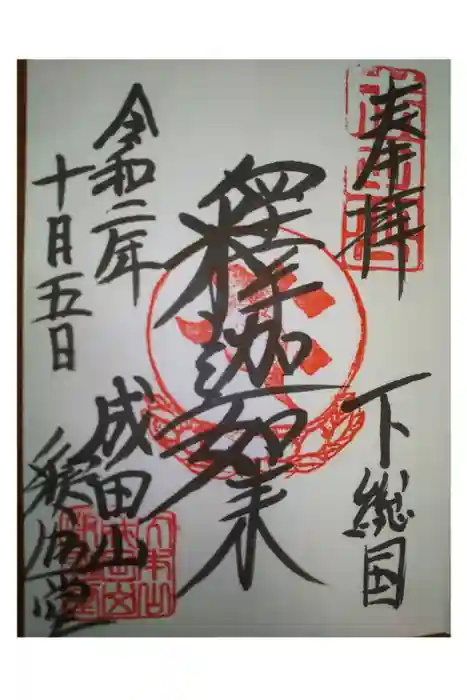 奉拝
下総国
釋迦如来
令和二年
十月五日
成田山
釈迦堂